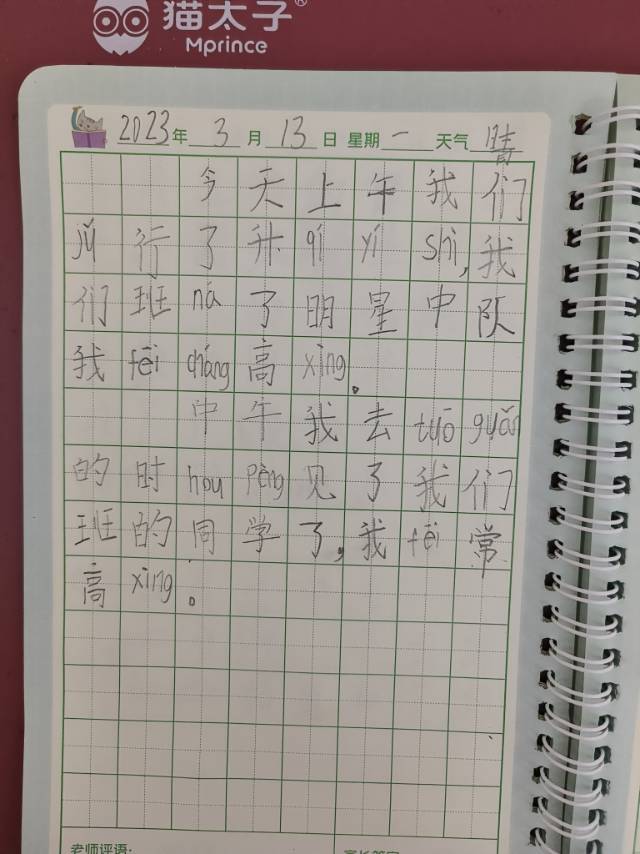 猫太子®
Mprince
2023年 3 月 13 日 星期 一 天气 晴
今天上午我们
jǔ行了升qí yí shì,我
们班ná了明星中队
我fēi cháng高xìng。
中午我去tuō guǎn
的时hou pèng见了我们
班的同学了,我fēi常
高xìng。
老师评语: